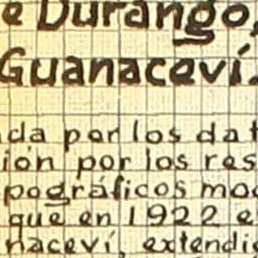 e Durango,
Guanaceví.
da por los dat
ión por los res
pográficos mod
que en 1922 e
naceví, extendi